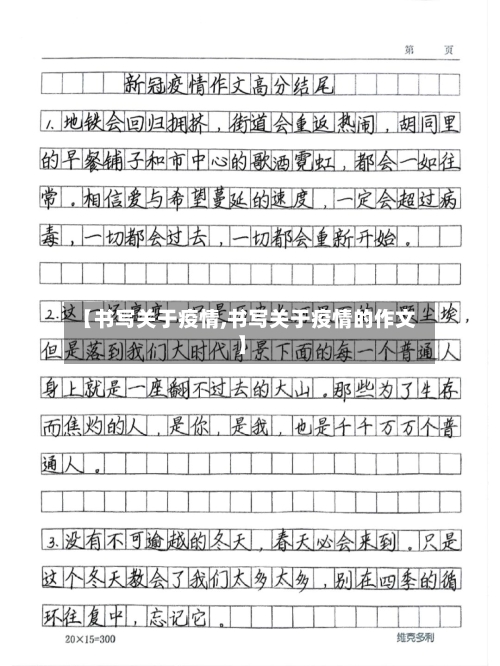 第 页
新冠疫情作文高分结尾
1.地铁会回归拥挤，街道会重返热闹，胡同里
的早餐铺子和市中心的歌酒霓虹，都会一如往
常。相信爱与希望蔓延的速度，一定会超过病
毒，一切都会过去，一切都会重新开始。
2.这 一 尘埃，
【书写关于疫情,书写关于疫情的作文
】
但是落到我们大时代背景下面的每一个普通人
身上就是一座翻不过去的大山。那些为了生存
而焦灼的人，是你，是我，也是千千万万个普
通人。
3.没有不可逾越的冬天，春天必会来到。只是
这个冬天教会了我们太多太多，别在四季的循
环往复中，忘记它。
20×15=300 维克多利